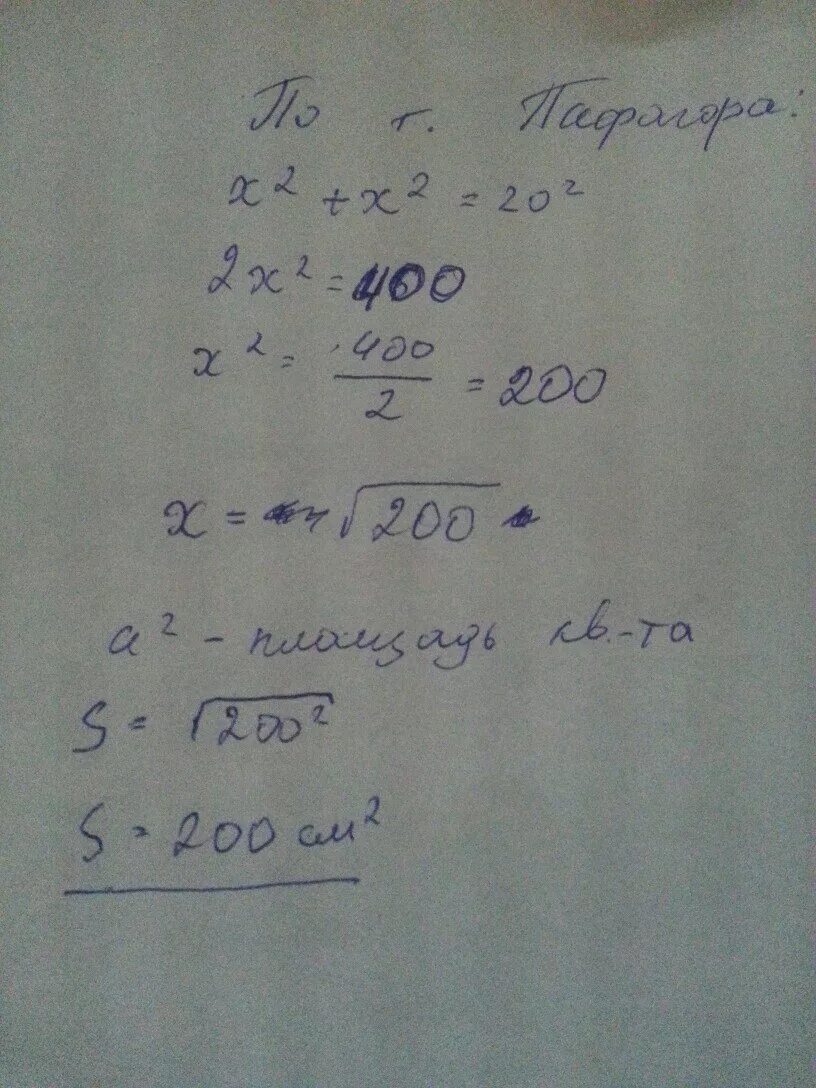 По т. Пафагора:
x² + x² = 20²
2x² = 400
x² = 400/2 = 200
x = √200
a² - площадь кв.-та
S = √200²
S = 200 см²